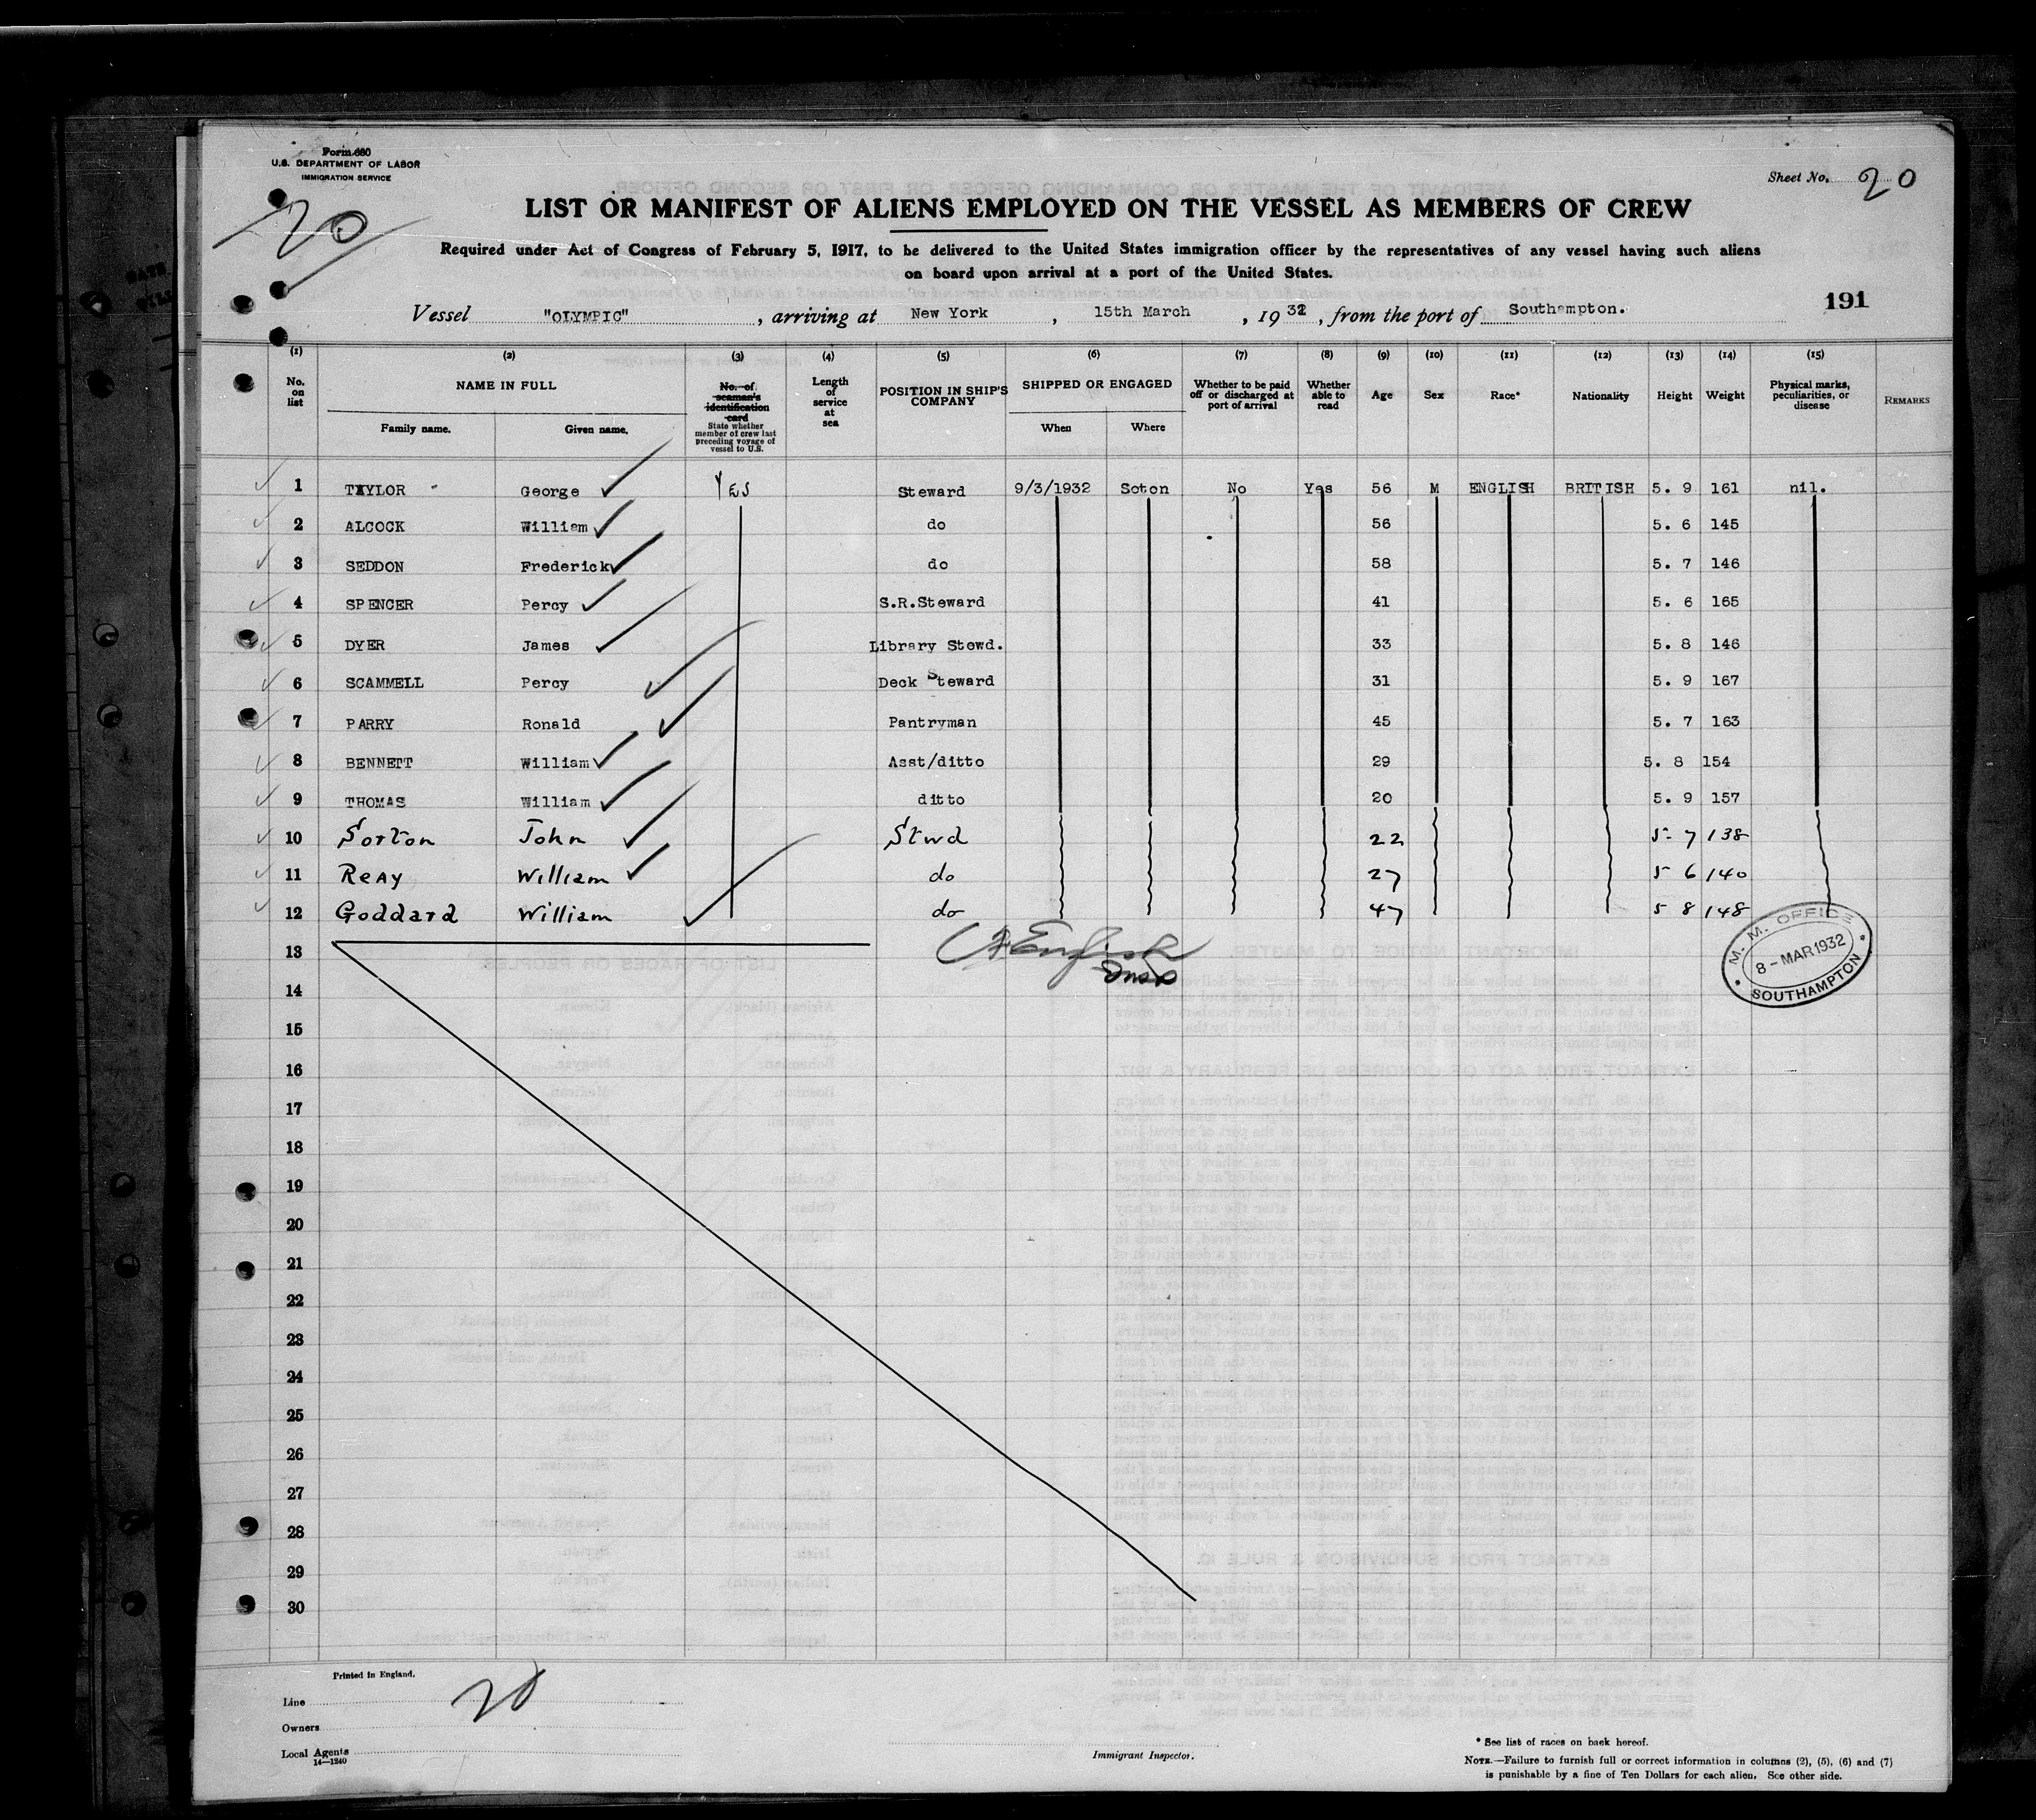 Form 680
U.S. DEPARTMENT OF LABOR
IMMIGRATION SERVICE
20
Sheet No. 20
LIST OR MANIFEST OF ALIENS EMPLOYED ON THE VESSEL AS MEMBERS OF CREW
Required under Act of Congress of February 5, 1917, to be delivered to the United States immigration officer by the representatives of any vessel having such aliens
on board upon arrival at a port of the United States.
191
Vessel "OLYMPIC", arriving at New York, 15th March, 1932, from the port of Southampton.
(1) (2) (3) (4) (5) (6) (7) (8) (9) (10) (11) (12) (13) (14) (15)
No. on list
NAME IN FULL
Family name. Given name.
No. of seaman's identification card
State whether member of crew last preceding voyage of vessel to U.S.
Length of service at sea
POSITION IN SHIP'S COMPANY
SHIPPED OR ENGAGED
When Where
Whether to be paid off or discharged at port of arrival
Whether able to read
Age
Sex
Race*
Nationality
Height
Weight
Physical marks, peculiarities, or disease
REMARKS
1 TAYLOR George YES Steward 9/3/1932 Soton No Yes 56 M ENGLISH BRITISH 5. 9 161 nil.
2 ALCOCK William do 56 5. 6 145
3 SEDDON Frederick do 58 5. 7 146
4 SPENCER Percy S.R.Steward 41 5. 6 165
5 DYER James Library Stewd. 33 5. 8 146
6 SCAMMELL Percy Deck Steward 31 5. 9 167
7 PARRY Ronald Pantryman 45 5. 7 163
8 BENNETT William Asst/ditto 29 5. 8 154
9 THOMAS William ditto 20 5. 9 157
10 Sorton John Stwd 22 5- 7 138
11 Reay William do 27 5 6 140
12 Goddard William do 47 5 8 148
13
14
15
16
17
18
19
20
21
22
23
24
25
26
27
28
29
30
M. M. OFFICE
8 - MAR 1932
SOUTHAMPTON
Printed in England.
Line
20
Owners
Local Agents
14—1240
Immigrant Inspector.
* See list of races on back hereof.
NOTE.—Failure to furnish full or correct information in columns (2), (5), (6) and (7)
is punishable by a fine of Ten Dollars for each alien. See other side.